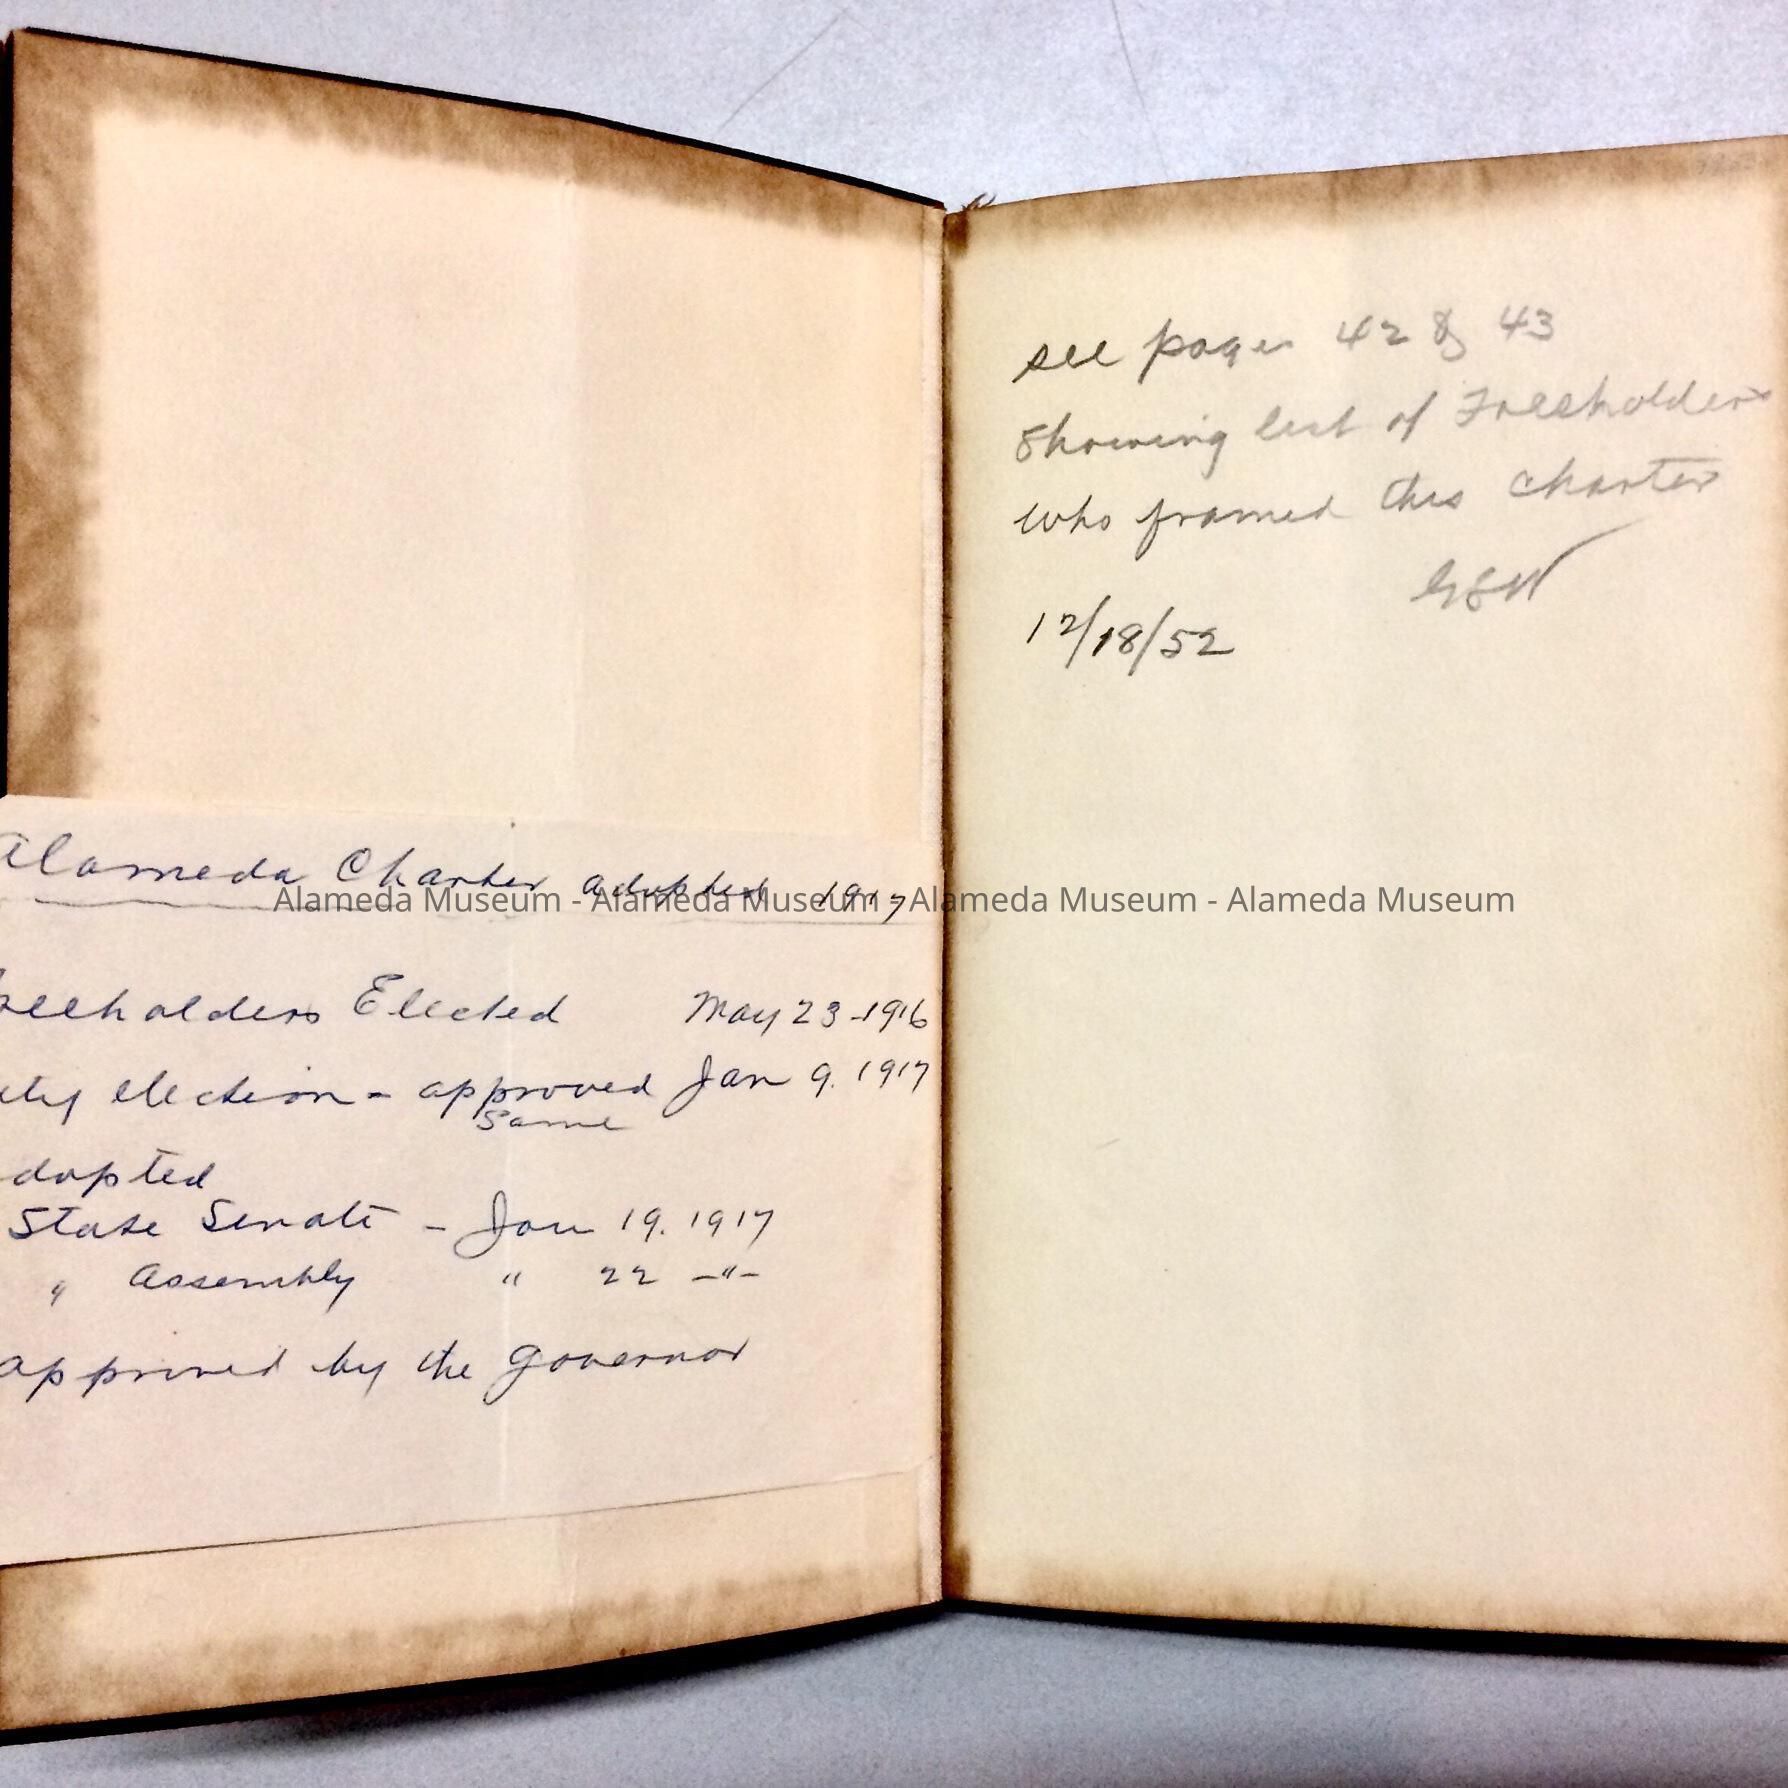 Alameda Charter adopted 1917
reeholders Elected May 23-1916
ity election - approved Jan 9. 1917
same
dopted
State Senate - Jan 19. 1917
" Assembly " 22 -"-
approved by the Governor
see pages 42 & 43
Showing list of Freeholders
who framed this charter
12/18/52
Alameda Museum - Alameda Museum - Alameda Museum - Alameda Museum